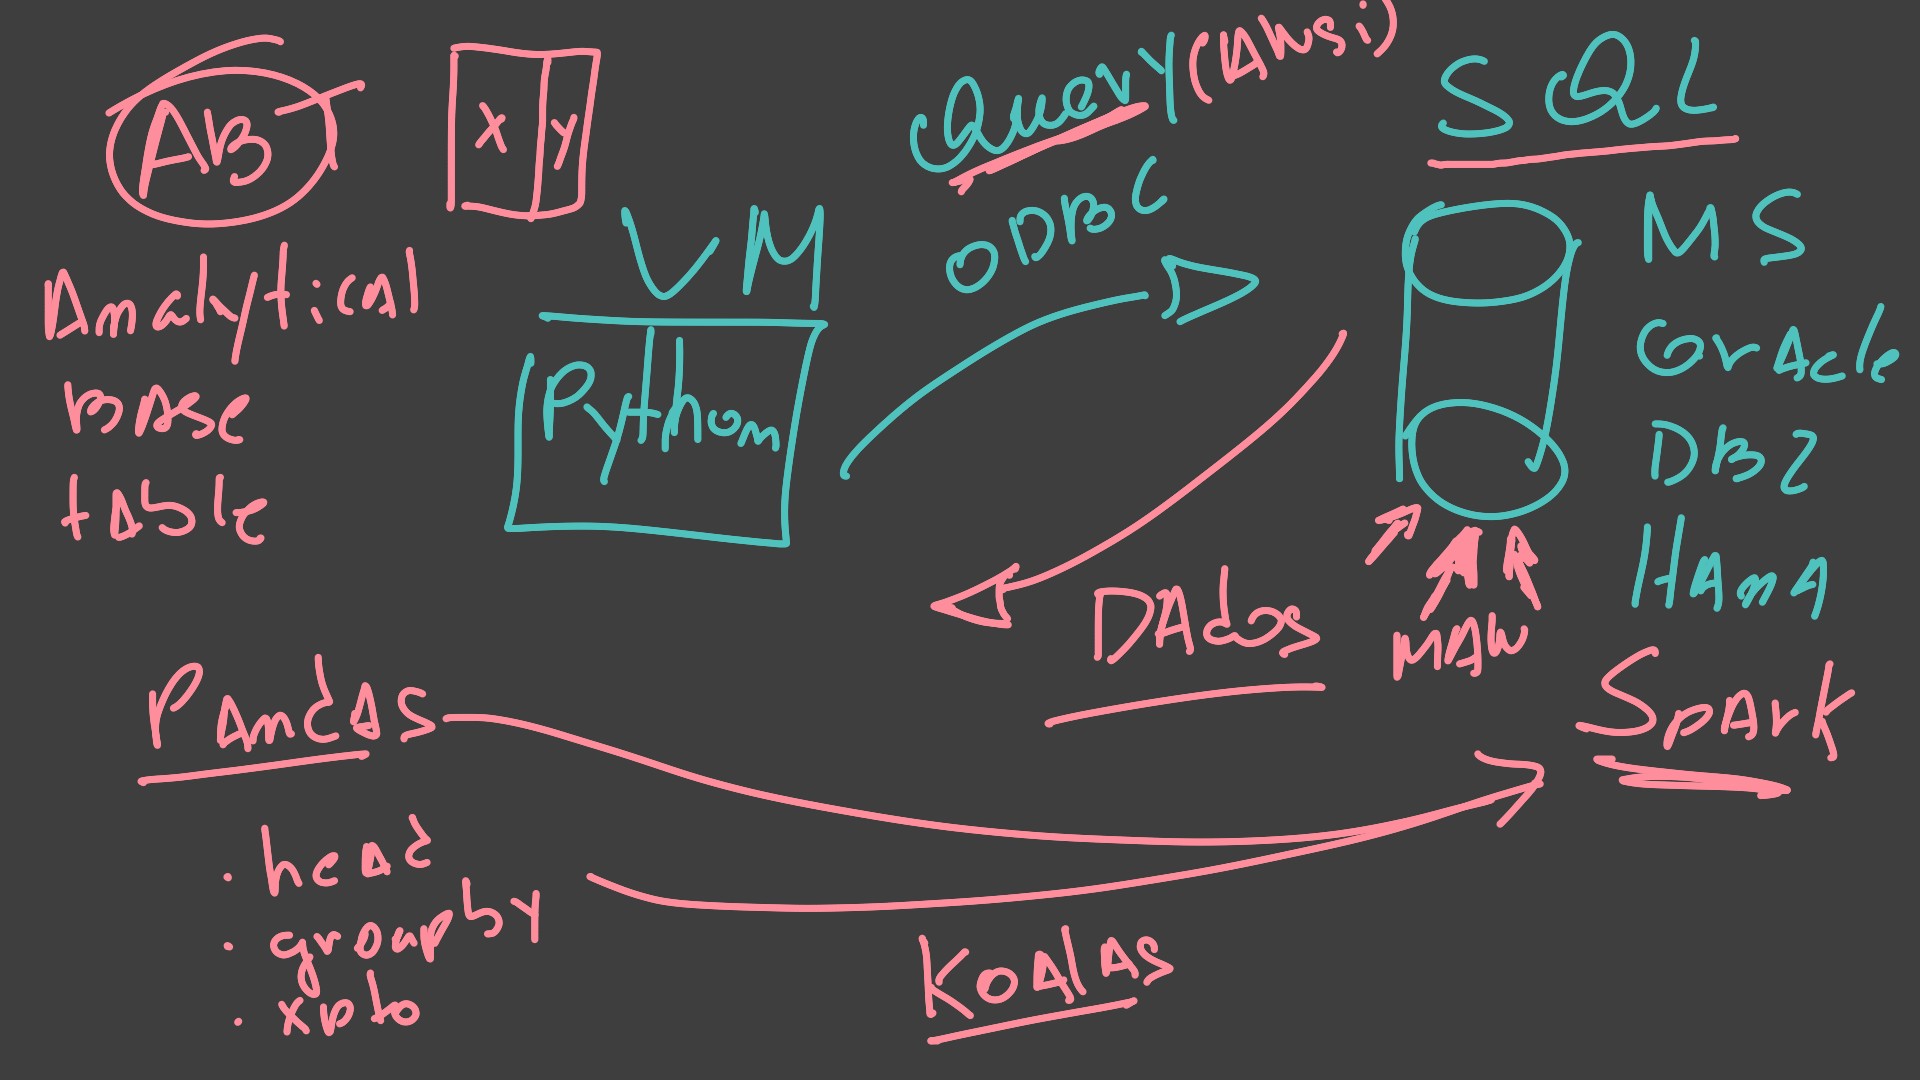 AB
X Y
Analytical
Base
table
VM
Python
Query (ANSi)
ODBC
SQL
MS
Oracle
DB2
HANA
DAdos
Spark
PAndAS
.head
.groupby
.xpto
KoAlAs